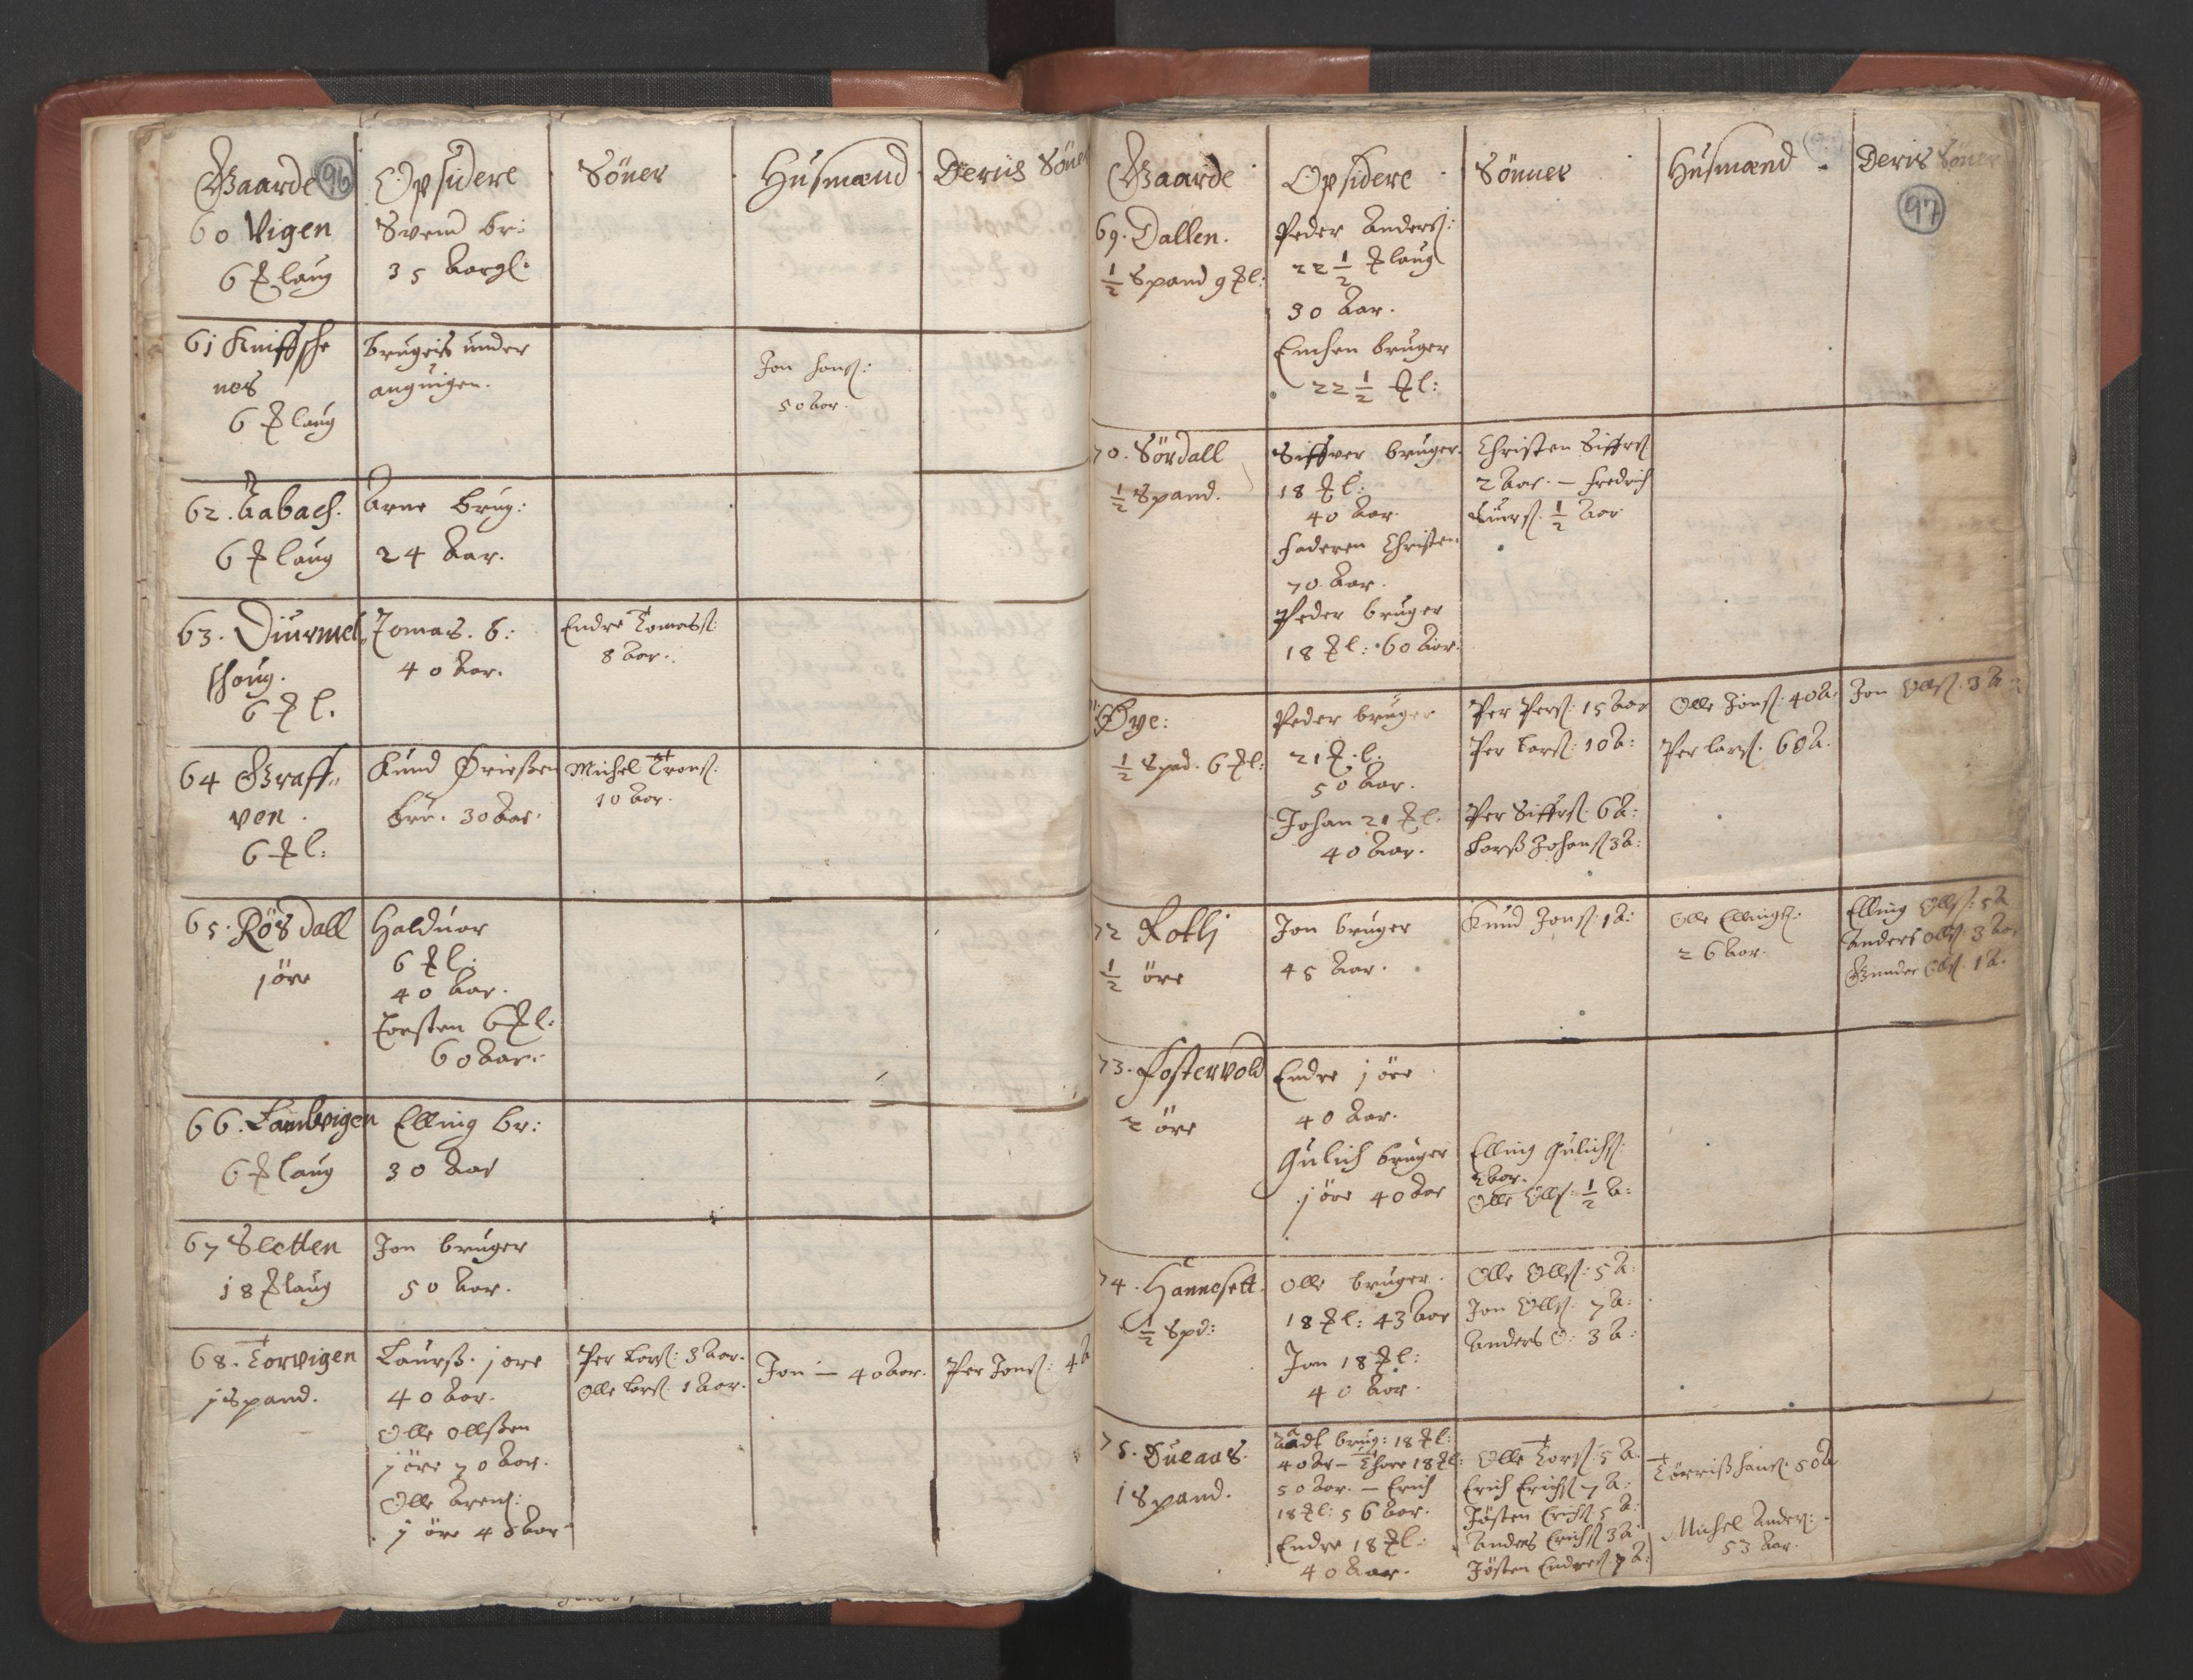 96
Gaarde Opsidere Söner Husmænd Deris Söner
60 Vigen
6 ℔ laug
Svend br:
35 Aargl.
61 Kniffsche
nes
6 ℔ laug
brugis under
anguigen.
Jon Hans:
50 Aar.
62. Aabach.
6 ℔ laug
Arne brug:
24 Aar.
63. Diurmel
shoug.
6 ℔ l.
Tomas. b:
40 Aar.
Endre Tomass:
8 Aar.
64 Graff„
ven.
6 ℔ l:
Knud
bru. 30 Aar.
Michel Trons:
10 Aar.
65. Rösdall
j öre
Halduor
6 ℔ l:
40 Aar.
Torsten 6 ℔ l:
60 Aar.
66. Lambvigen
6 ℔ laug
Elling br:
30 Aar
67 Sletten
18 ℔ laug
Jon bruger
50 Aar.
68. Torvigen
j Spand.
Laurß. j öre
40 Aar.
Olle Ollßen
j öre 70 Aar.
Olle Arens:
j öre 40 Aar
Per Lars: 3 Aar.
Olle Lars. 1 Aar.
Jon — 40 Aar.
Per Jons: 4 A
97
Gaarde Opsidere Sönner Husmænd. Deris Söner
69. Dallen.
½ Spand 9 ℔ l:
Peder Anders:
22 ½ ℔ laug
30 Aar.
Enchen bruger
22 ½ ℔ l:
70. Sördall
½ Spand.
Siffver bruger
18 ℔ l:
40 Aar.
Faderen Christen
70 Aar.
Peder bruger
18 ℔ l: 60 Aar.
Christen Siffrs
2 Aar. — Fredrich
½ Aar
Øye:
½ Spad. 6 ℔ l:
Peder bruger
21 ℔ l:
50 Aar.
Johan 21 ℔ l.
40 Aar.
Per Pers: 15 Aar
Per Lars: 10 A:
Per Siffrs: 6 A:
Larß Johans 3 A:
Olle Jons: 40 A:
Per Lars. 60 A.
Jon Olls. 3 A
72 Rotlj
½ öre
Jon bruger
45 Aar.
Knud Jons: 1 A:
Olle Ellings:
26 Aar.
Elling Olls: 5 A
Anders Olls. 3 Aar
Gunder Olls. 1 A.
73. Fostervold
2 öre
Endre j öre
40 Aar.
Gulich bruger
j öre 40 Aar
Elling Gulichs:
2 Aar.
Olle Olls: ½ A:
74. Hannesett.
½ Spd:
Olle bruger.
18 ℔ l: 43 Aar
Jon 18 ℔ l:
40 Aar.
Olle Olls: 5 A:
Jon Olls: 7 A:
Anders O: 3 A:
75. Dueaas.
1 Spand.
brug: 18 ℔ l:
40 Ar — Thore 18 ℔ l:
50 Aar. — Erich
18 ℔ l: 56 Aar.
Endre 18 ℔ l:
40 Aar.
Olle Tors: 5 A.
Erich Erichs 7 A:
Jösten Erichs 5 A:
Anders Erichs 3 A:
Jösten Endres 7 A:
Törriß Hans: 50 A
Michel Anders:
53 Aar.